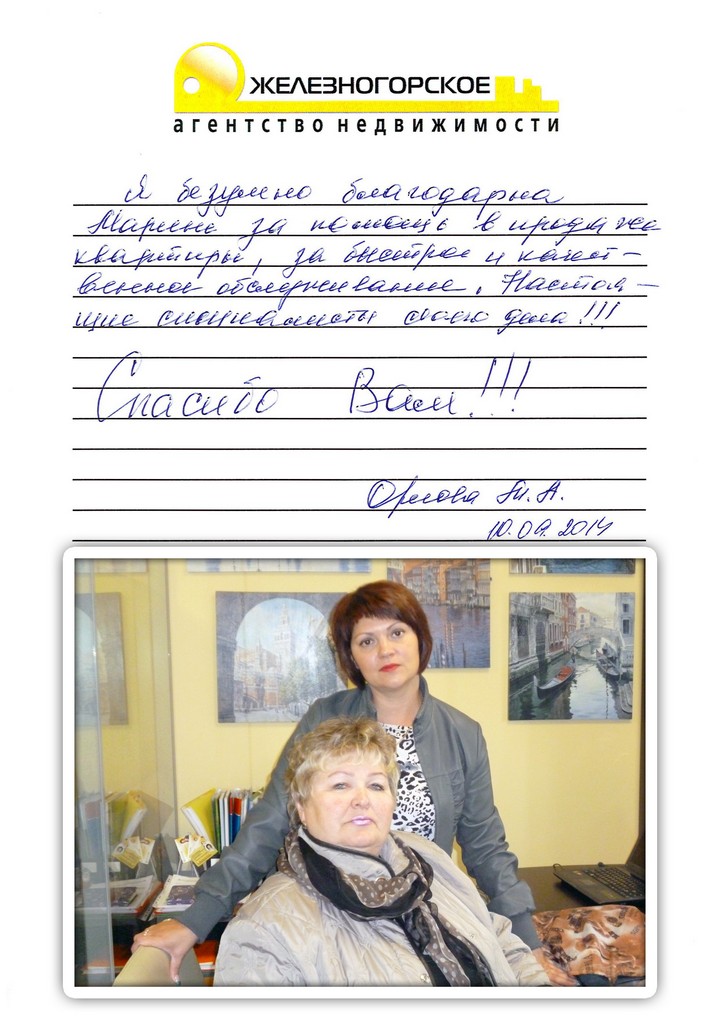 ЖЕЛЕЗНОГОРСКОЕ
агентство недвижимости
Я безумно благодарна
Марине за помощь в продаже
квартиры, за быстрое и качест-
венное обслуживание. Настоя-
щие специалисты своего дела!!!
Спасибо Вам!!!
Орлова Т.А.
10.09.2014